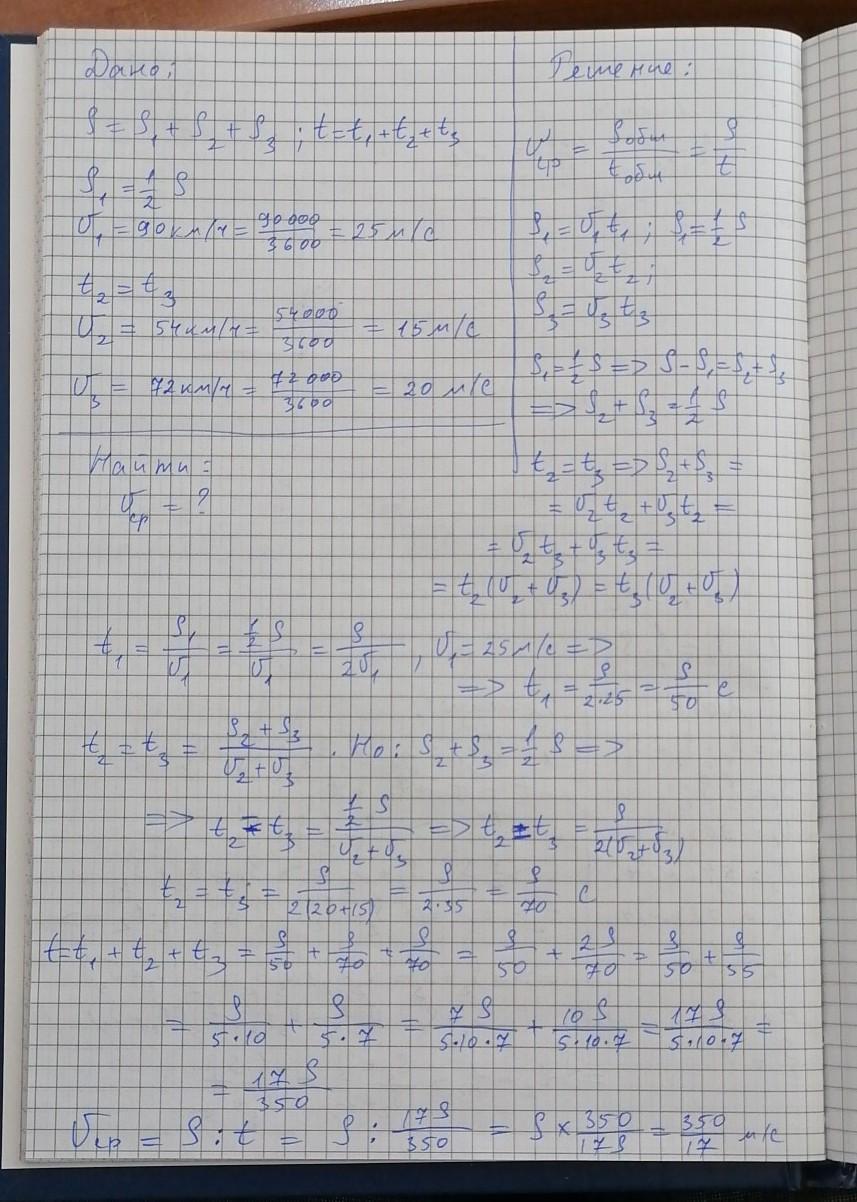 Дано:
S = S₁ + S₂ + S₃ ; t = t₁ + t₂ + t₃
S₁ = 1/2 S
υ₁ = 90 км/ч = 90000/3600 = 25 м/с
t₂ = t₃
υ₂ = 54 км/ч = 54000/3600 = 15 м/с
υ₃ = 72 км/ч = 72000/3600 = 20 м/с
Найти:
υср = ?
Решение:
υср = Sобщ/tобщ = S/t
S₁ = υ₁t₁ ; S₁ = 1/2 S
S₂ = υ₂t₂ ;
S₃ = υ₃t₃
S₁ = 1/2 S => S - S₁ = S₂ + S₃
=> S₂ + S₃ = 1/2 S
t₂ = t₃ => S₂ + S₃ =
= υ₂t₂ + υ₃t₂ =
= υ₂t₃ + υ₃t₃ =
= t₂(υ₂ + υ₃) = t₃(υ₂ + υ₃)
t₁ = S₁/υ₁ = (1/2 S)/υ₁ = S/2υ₁ , υ₁ = 25 м/с =>
=> t₁ = S/2·25 = S/50 с
t₂ = t₃ = (S₂ + S₃)/(υ₂ + υ₃) . Но: S₂ + S₃ = 1/2 S =>
=> t₂ = t₃ = (1/2 S)/(υ₂ + υ₃) => t₂ = t₃ = S/2(υ₂ + υ₃)
t₂ = t₃ = S/2(20+15) = S/2·35 = S/70 с
t = t₁ + t₂ + t₃ = S/50 + S/70 + S/70 = S/50 + 2S/70 = S/50 + S/35
= S/5·10 + S/5·7 = 7S/5·10·7 + 10S/5·10·7 = 17S/5·10·7 =
= 17S/350
υср = S : t = S : 17S/350 = S × 350/17S = 350/17 м/с